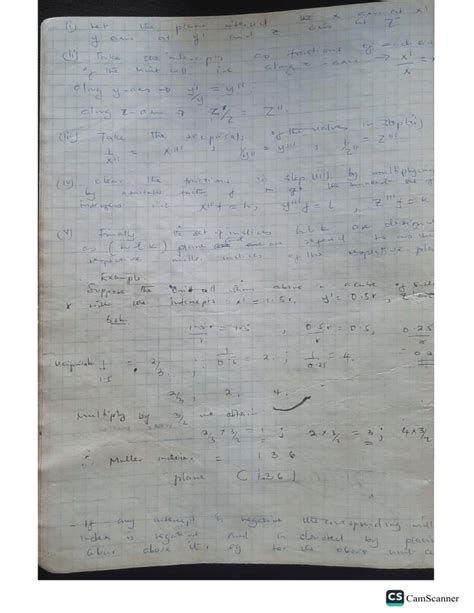 (i) Let the plane intersect the x axis at x'
y axis at y' and z axis at z'
(ii) Take the intercepts as fractions of each axis
of the unit cell i.e. along x-axis → x'/x = x''
along y-axis → y'/y = y''
along z-axis → z'/z = z''
(iii) Take the reciprocals of the values in step (ii)
1/x'' = x''' ; 1/y'' = y''' ; 1/z'' = z'''
(iv) clear the fractions in step (iii) by multiplying
by suitable factor f
integers i.e. x'''f = h, y'''f = k, z'''f
(v) Finally the set of indices h k l are designated
as (h k l) plane and are referred to as the
respective miller indices of the respective plane
Example
Suppose the unit cell shown above is a cube of side
x with the intercepts x' = 1.5x, y' = 0.5x, z
Soln
1.5x/x = 1.5 , 0.5x/x = 0.5, 0.25
Reciprocals 1/1.5 = 2/3 ; 1/0.5 = 2 ; 1/0.25 = 4.
2/3, 2, 4.
Multiply by 3/2 we obtain
2/3 × 3/2 = 1 ; 2 × 3/2 = 3 ; 4 × 3/2
∴ Miller indices = 1 3 6
plane (1 3 6)
- If any intercept is negative the corresponding miller
index is negative and is denoted by placing
a bar above it, eg for the above unit ce